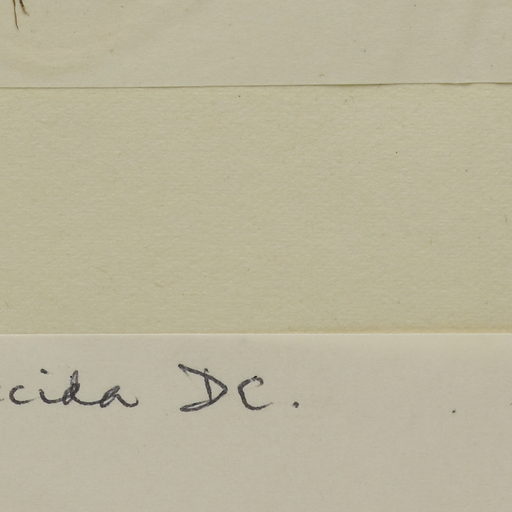 cida DC.